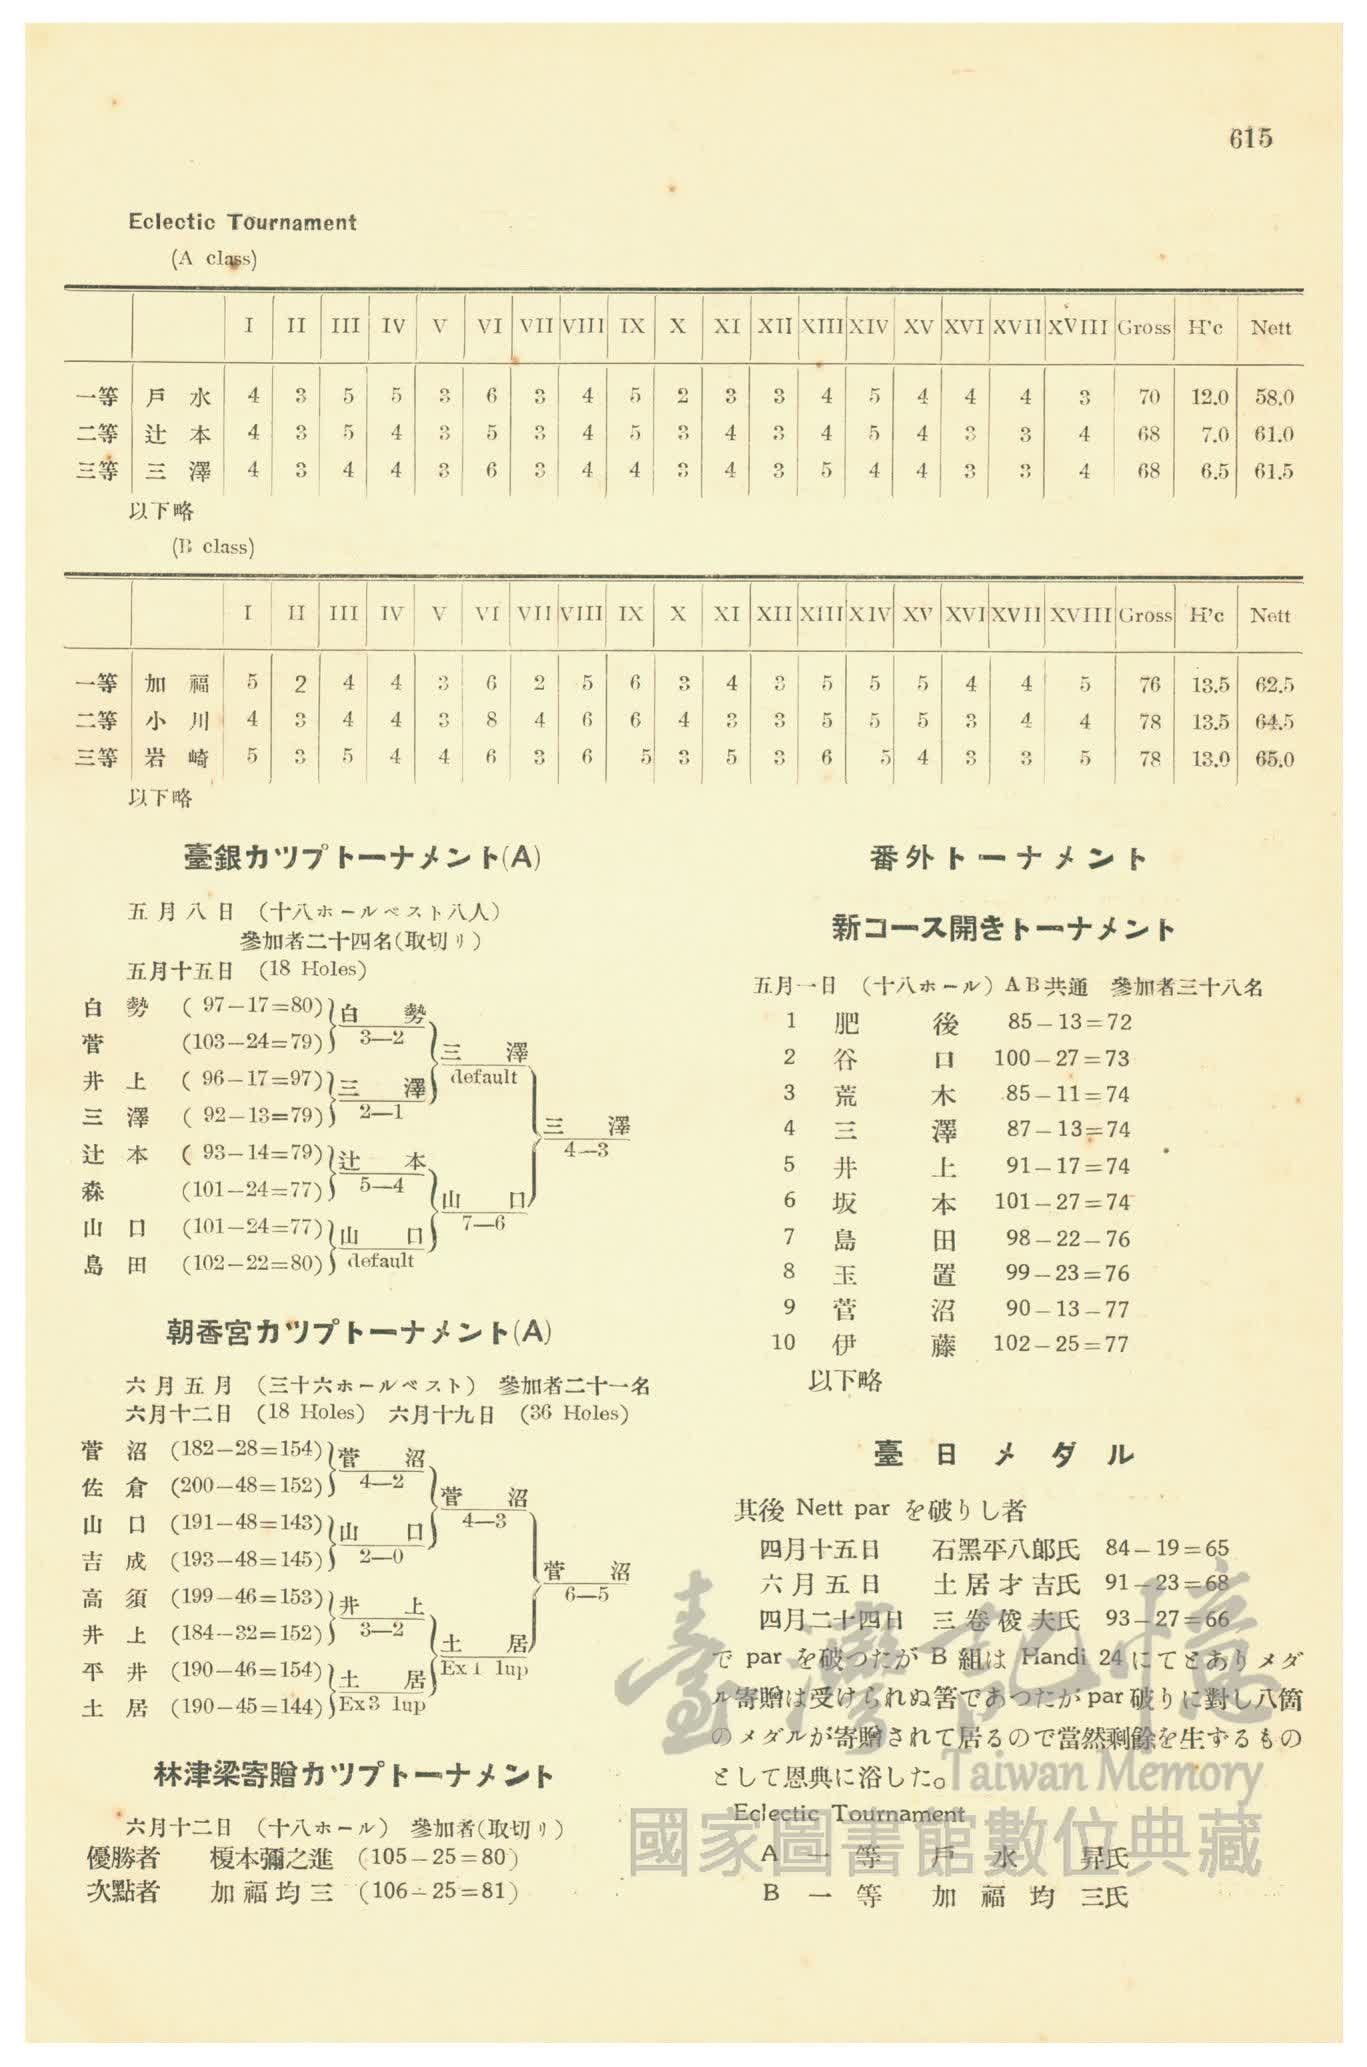 615
Eclectic Tournament
(A class)
I II III IV V VI VII VIII IX X XI XII XIII XIV XV XVI XVII XVIII Gross H'c Nett
一等 戸水 4 3 5 5 3 6 3 4 5 2 3 3 4 5 4 4 4 3 70 12.0 58.0
二等 辻本 4 3 5 4 3 5 3 4 5 3 4 3 4 5 4 3 3 4 68 7.0 61.0
三等 三澤 4 3 4 4 3 6 3 4 4 3 4 3 5 4 4 3 3 4 68 6.5 61.5
以下略
(B class)
I II III IV V VI VII VIII IX X XI XII XIII XIV XV XVI XVII XVIII Gross H'c Nett
一等 加福 5 2 4 4 3 6 2 5 6 3 4 3 5 5 5 4 4 5 76 13.5 62.5
二等 小川 4 3 4 4 3 8 4 6 6 4 3 3 5 5 5 3 4 4 78 13.5 64.5
三等 岩崎 5 3 5 4 4 6 3 6 5 3 5 3 6 5 4 3 3 5 78 13.0 65.0
以下略
臺銀カツプトーナメント(A)
五月八日 (十八ホールベスト八人)
參加者二十四名(取切リ)
五月十五日 (18 Holes)
白勢 ( 97—17=80)
菅 (103—24=79)
井上 ( 96—17=97)
三澤 ( 92—13=79)
辻本 ( 93—14=79)
森 (101—24=77)
山口 (101—24=77)
島田 (102—22=80)
白勢
3—2
三澤
2—1
辻本
5—4
山口
default
三澤
default
山口
7—6
三澤
4—3
朝香宮カツプトーナメント(A)
六月五月 (三十六ホールベスト) 參加者二十一名
六月十二日 (18 Holes) 六月十九日 (36 Holes)
菅沼 (182—28=154)
佐倉 (200—48=152)
山口 (191—48=143)
吉成 (193—48=145)
高須 (199—46=153)
井上 (184—32=152)
平井 (190—46=154)
土居 (190—45=144)
菅沼
4—2
山口
2—0
井上
3—2
土居
Ex3 1up
菅沼
4—3
土居
Ex1 1up
菅沼
6—5
林津梁寄贈カツプトーナメント
六月十二日 (十八ホール) 參加者(取切リ)
優勝者 榎本彌之進 (105—25=80)
次點者 加福均三 (106—25=81)
番外トーナメント
新コース開きトーナメント
五月一日 (十八ホール) AB共通 參加者三十八名
1 肥後 85—13=72
2 谷口 100—27=73
3 荒木 85—11=74
4 三澤 87—13=74
5 井上 91—17=74
6 坂本 101—27=74
7 島田 98—22—76
8 玉置 99—23=76
9 菅沼 90—13—77
10 伊藤 102—25=77
以下略
臺日メダル
其後 Nett par を破りし者
四月十五日 石黑平八郎氏 84—19=65
六月五日 土居才吉氏 91—23=68
四月二十四日 三卷俊夫氏 93—27=66
で par を破つたが B 組は Handi 24 にてとありメダ
ル寄贈は受けられぬ筈であつたが par 破りに對し八箇
のメダルが寄贈されて居るので當然剩餘を生ずるもの
として恩典に浴した。
Eclectic Tournament
A 一等 戸水昇氏
B 一等 加福均三氏
臺灣記憶
Taiwan Memory
國家圖書館數位典藏